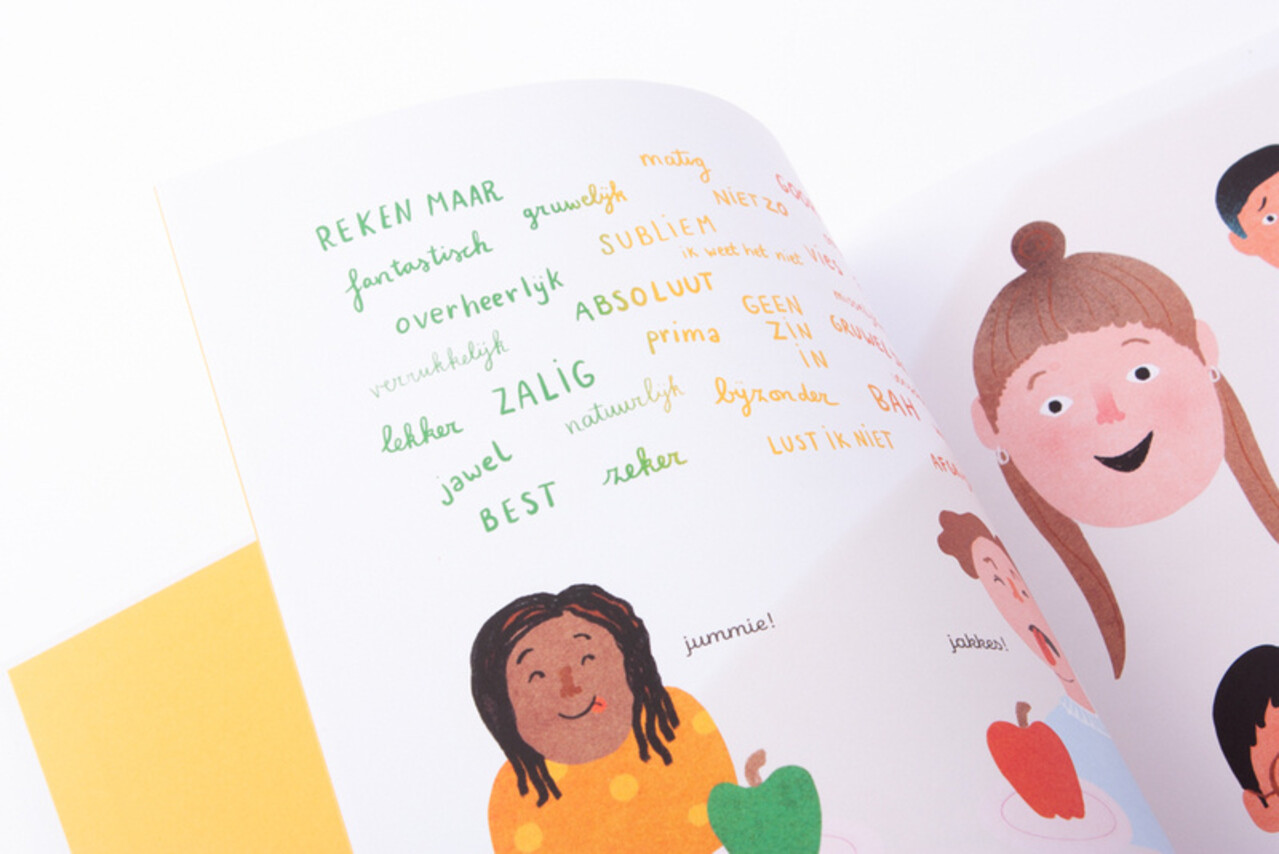 REKEN MAAR
fantastisch
gruwelijk
matig
overheerlijk
SUBLIEM
NIET ZO
ik weet het niet
VIES
verrukkelijk
ABSOLUUT
GEEN
ZIN
IN
lekker
ZALIG
prima
natuurlijk
bijzonder
BAH
jawel
zeker
LUST IK NIET
BEST
jummie!
jakkes!